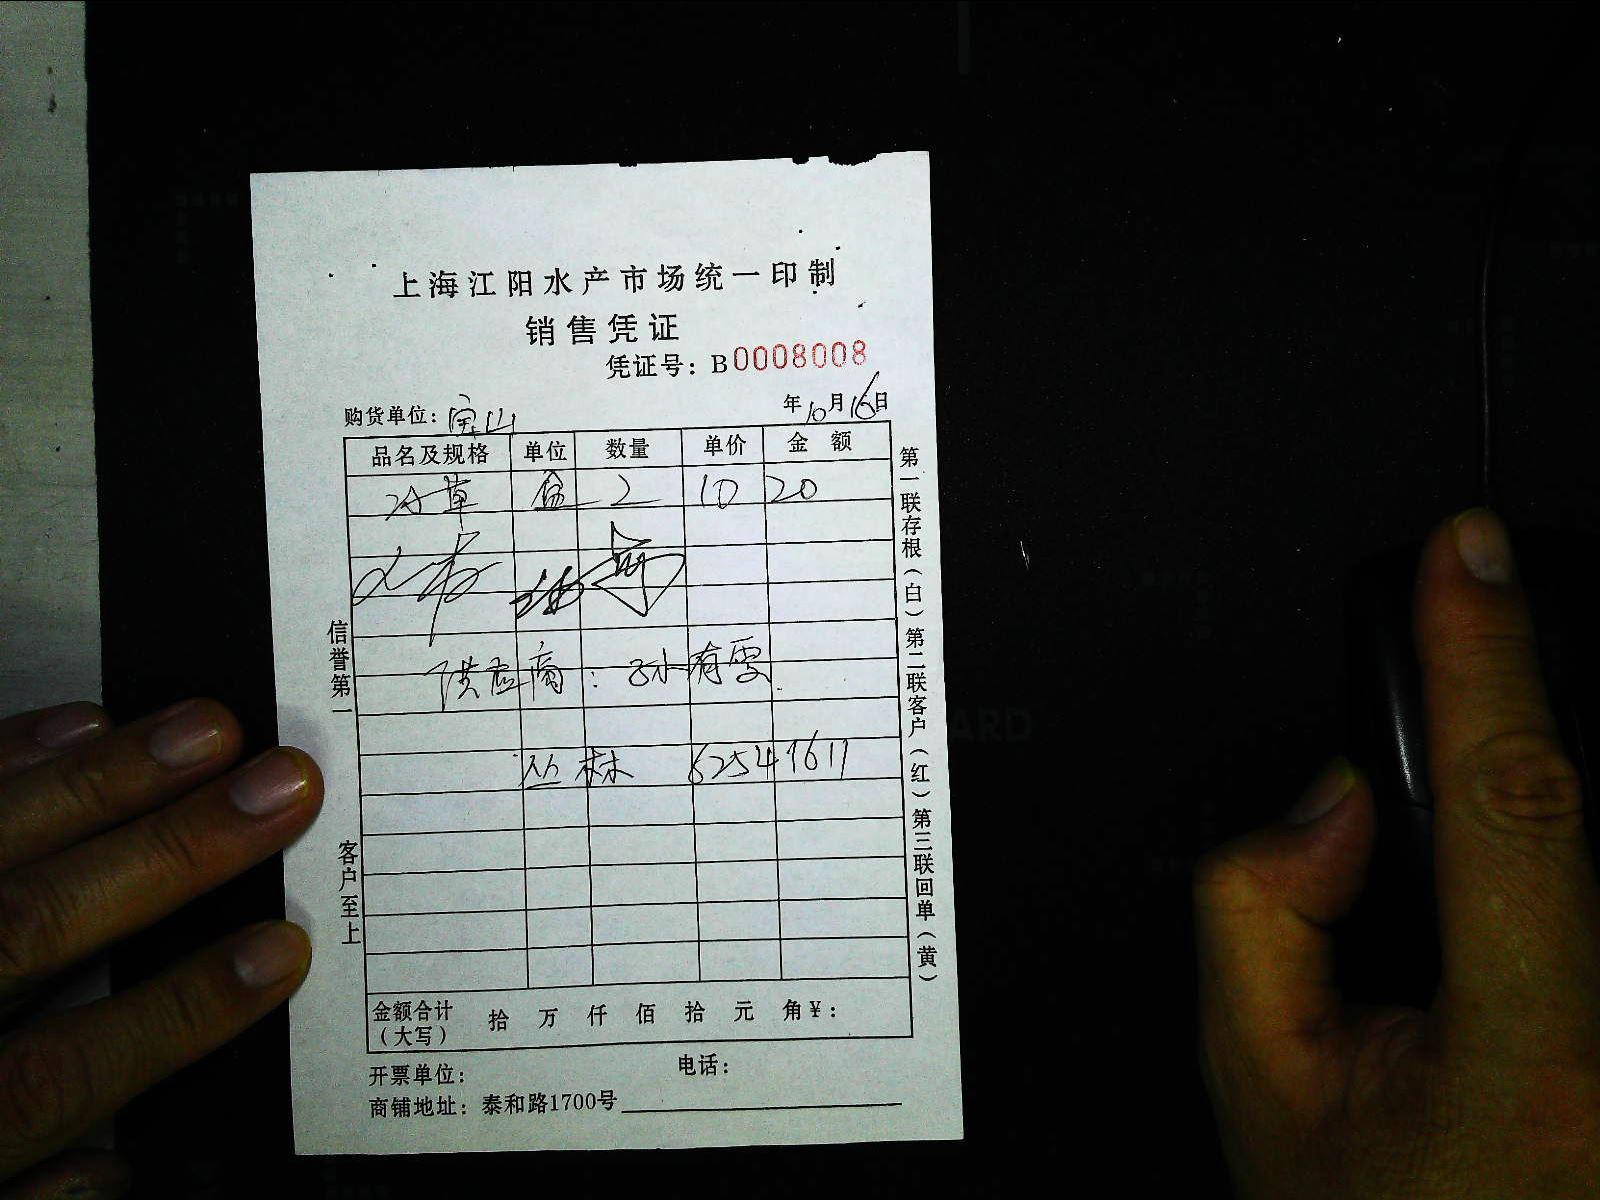 上海江阳水产市场统一印制
销售凭证
凭证号：B0008008
购货单位：宝山 年10月16日
品名及规格 单位 数量 单价 金额
草 盒 2 10 20
供应商：孙有雯
丛林 62541611
金额合计（大写） 拾 万 仟 佰 拾 元 角¥：
开票单位： 电话：
商铺地址：泰和路1700号
信誉第一 客户至上
第一联存根（白）第二联客户（红）第三联回单（黄）
ARD